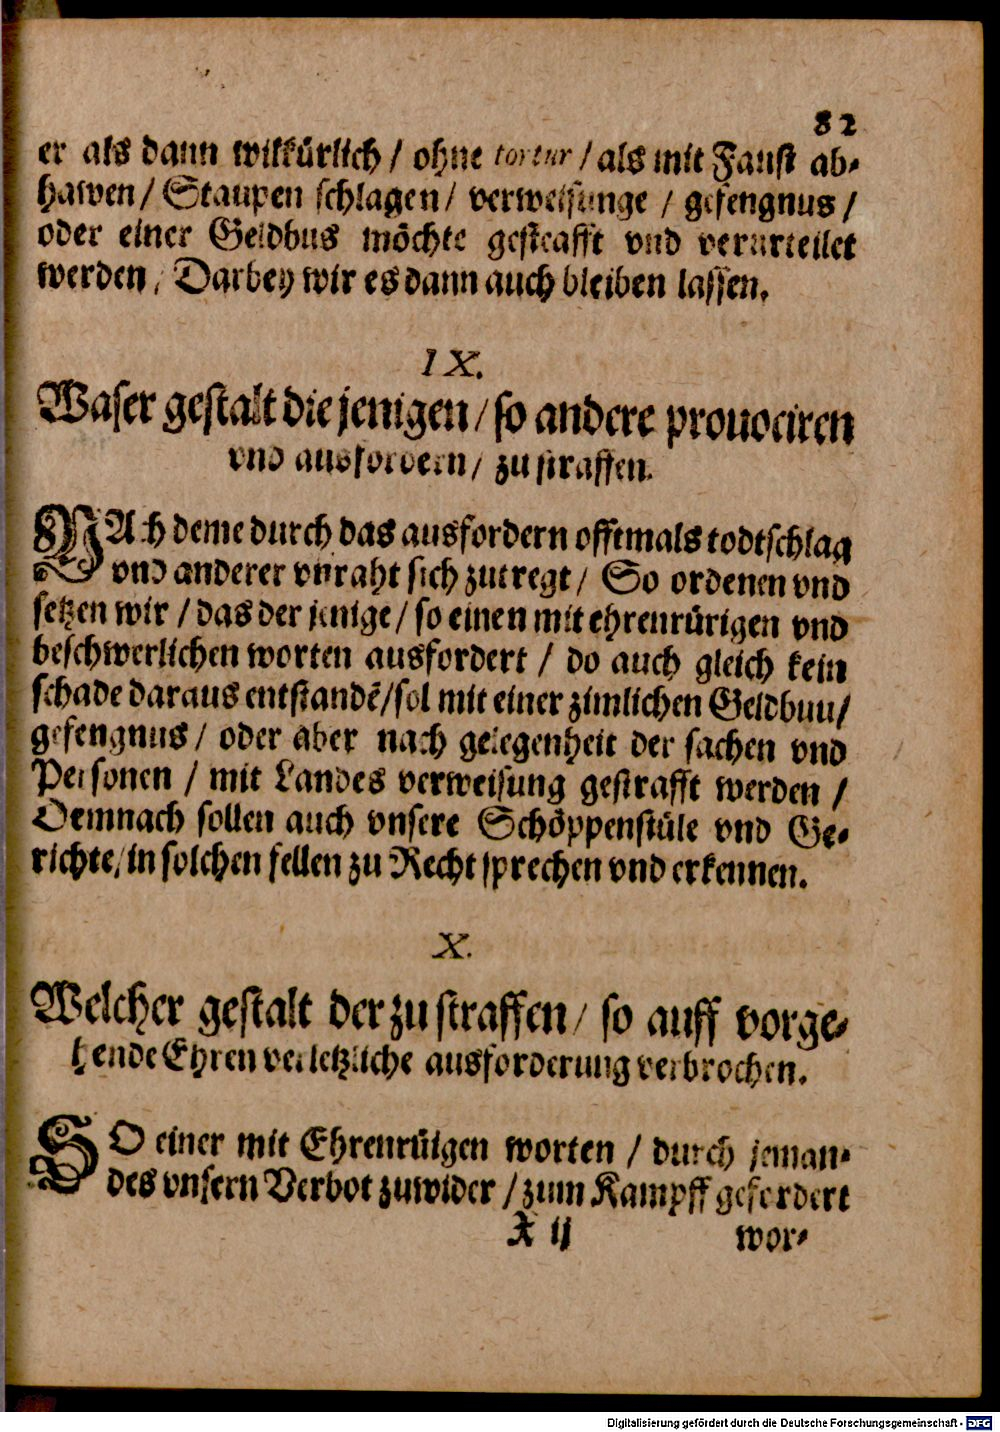 82
er als dann wilkürlich / ohne tortur / als mit Faust ab-
hawen / Staupen schlagen / verweisunge / gefengnus /
oder einer Geldbus möchte gestrafft vnd verurteilet
werden / Darbey wir es dann auch bleiben lassen.
IX.
Waser gestalt die jenigen / so andere prouociren
vnd ausfordern / zu straffen.
NAch deme durch das ausfordern offtmals todtschlag
vnd anderer vnraht sich zutregt / So ordenen vnd
setzen wir / das der jenige / so einen mit ehrenrürigen vnd
beschwerlichen worten ausfordert / do auch gleich kein
schade daraus entstandē / sol mit einer zimlichen Geldbuu /
gefengnus / oder aber nach gelegenheit der sachen vnd
Personen / mit Landes verweisung gestrafft werden /
Demnach sollen auch vnsere Schöppenstüle vnd Ge-
richte / in solchen fellen zu Recht sprechen vnd erkennen.
X.
Welcher gestalt der zu straffen / so auff vorge-
hende Ehren verletzliche ausforderung verbrochen.
SO einer mit Ehrenrüigen worten / durch jeman-
des vnsern Verbot zuwider / zum Kampff gefordert
X ij wor-
Digitalisierung gefördert durch die Deutsche Forschungsgemeinschaft - DFG